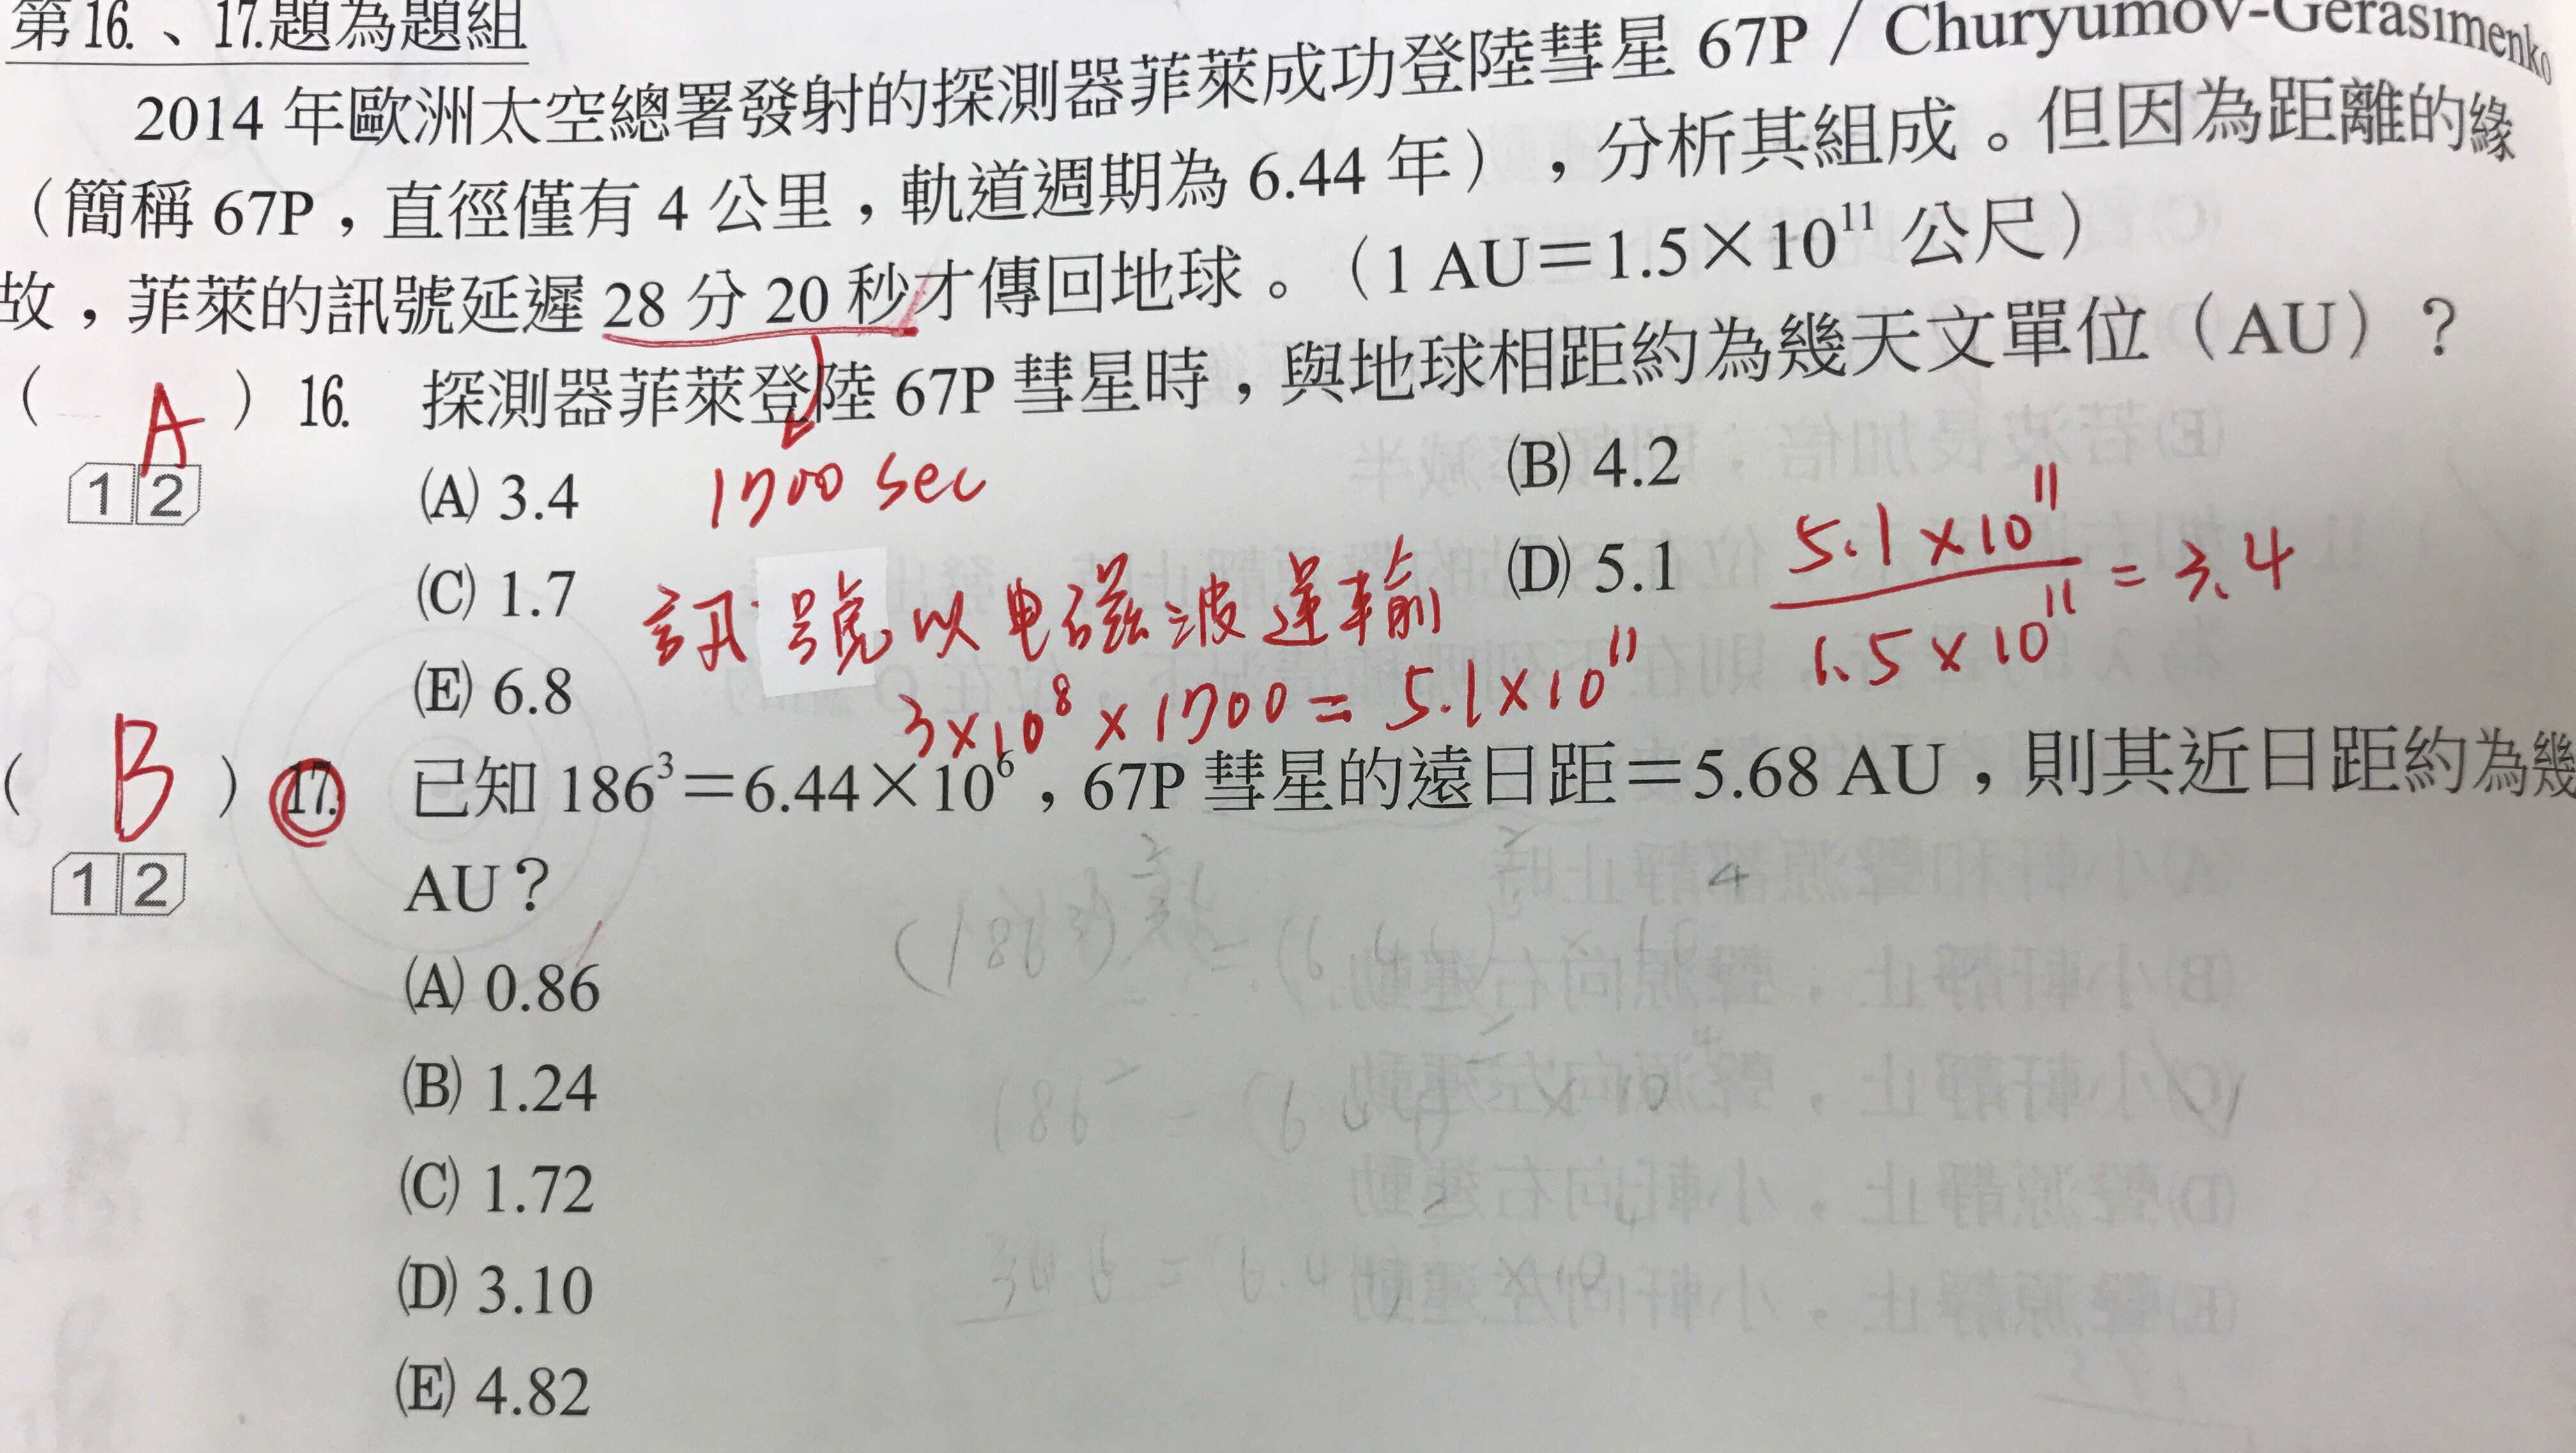 第16.、17.題為題組
2014 年歐洲太空總署發射的探測器菲萊成功登陸彗星 67P / Churyumov-Gerasimenko
（簡稱 67P，直徑僅有 4 公里，軌道週期為 6.44 年），分析其組成。但因為距離的緣
故，菲萊的訊號延遲 28 分 20 秒才傳回地球。（1 AU＝1.5×10¹¹ 公尺）
( A ) 16. 探測器菲萊登陸 67P 彗星時，與地球相距約為幾天文單位（AU）？
1 2
(A) 3.4
(B) 4.2
1700 sec
(C) 1.7
(D) 5.1
5.1×10¹¹
1.5×10¹¹
= 3.4
訊號以电磁波運輸
(E) 6.8
3×10⁸×1700 = 5.1×10¹¹
( B ) 17. 已知 186³＝6.44×10⁶，67P 彗星的遠日距＝5.68 AU，則其近日距約為幾
1 2
AU？
(A) 0.86
(B) 1.24
(C) 1.72
(D) 3.10
(E) 4.82